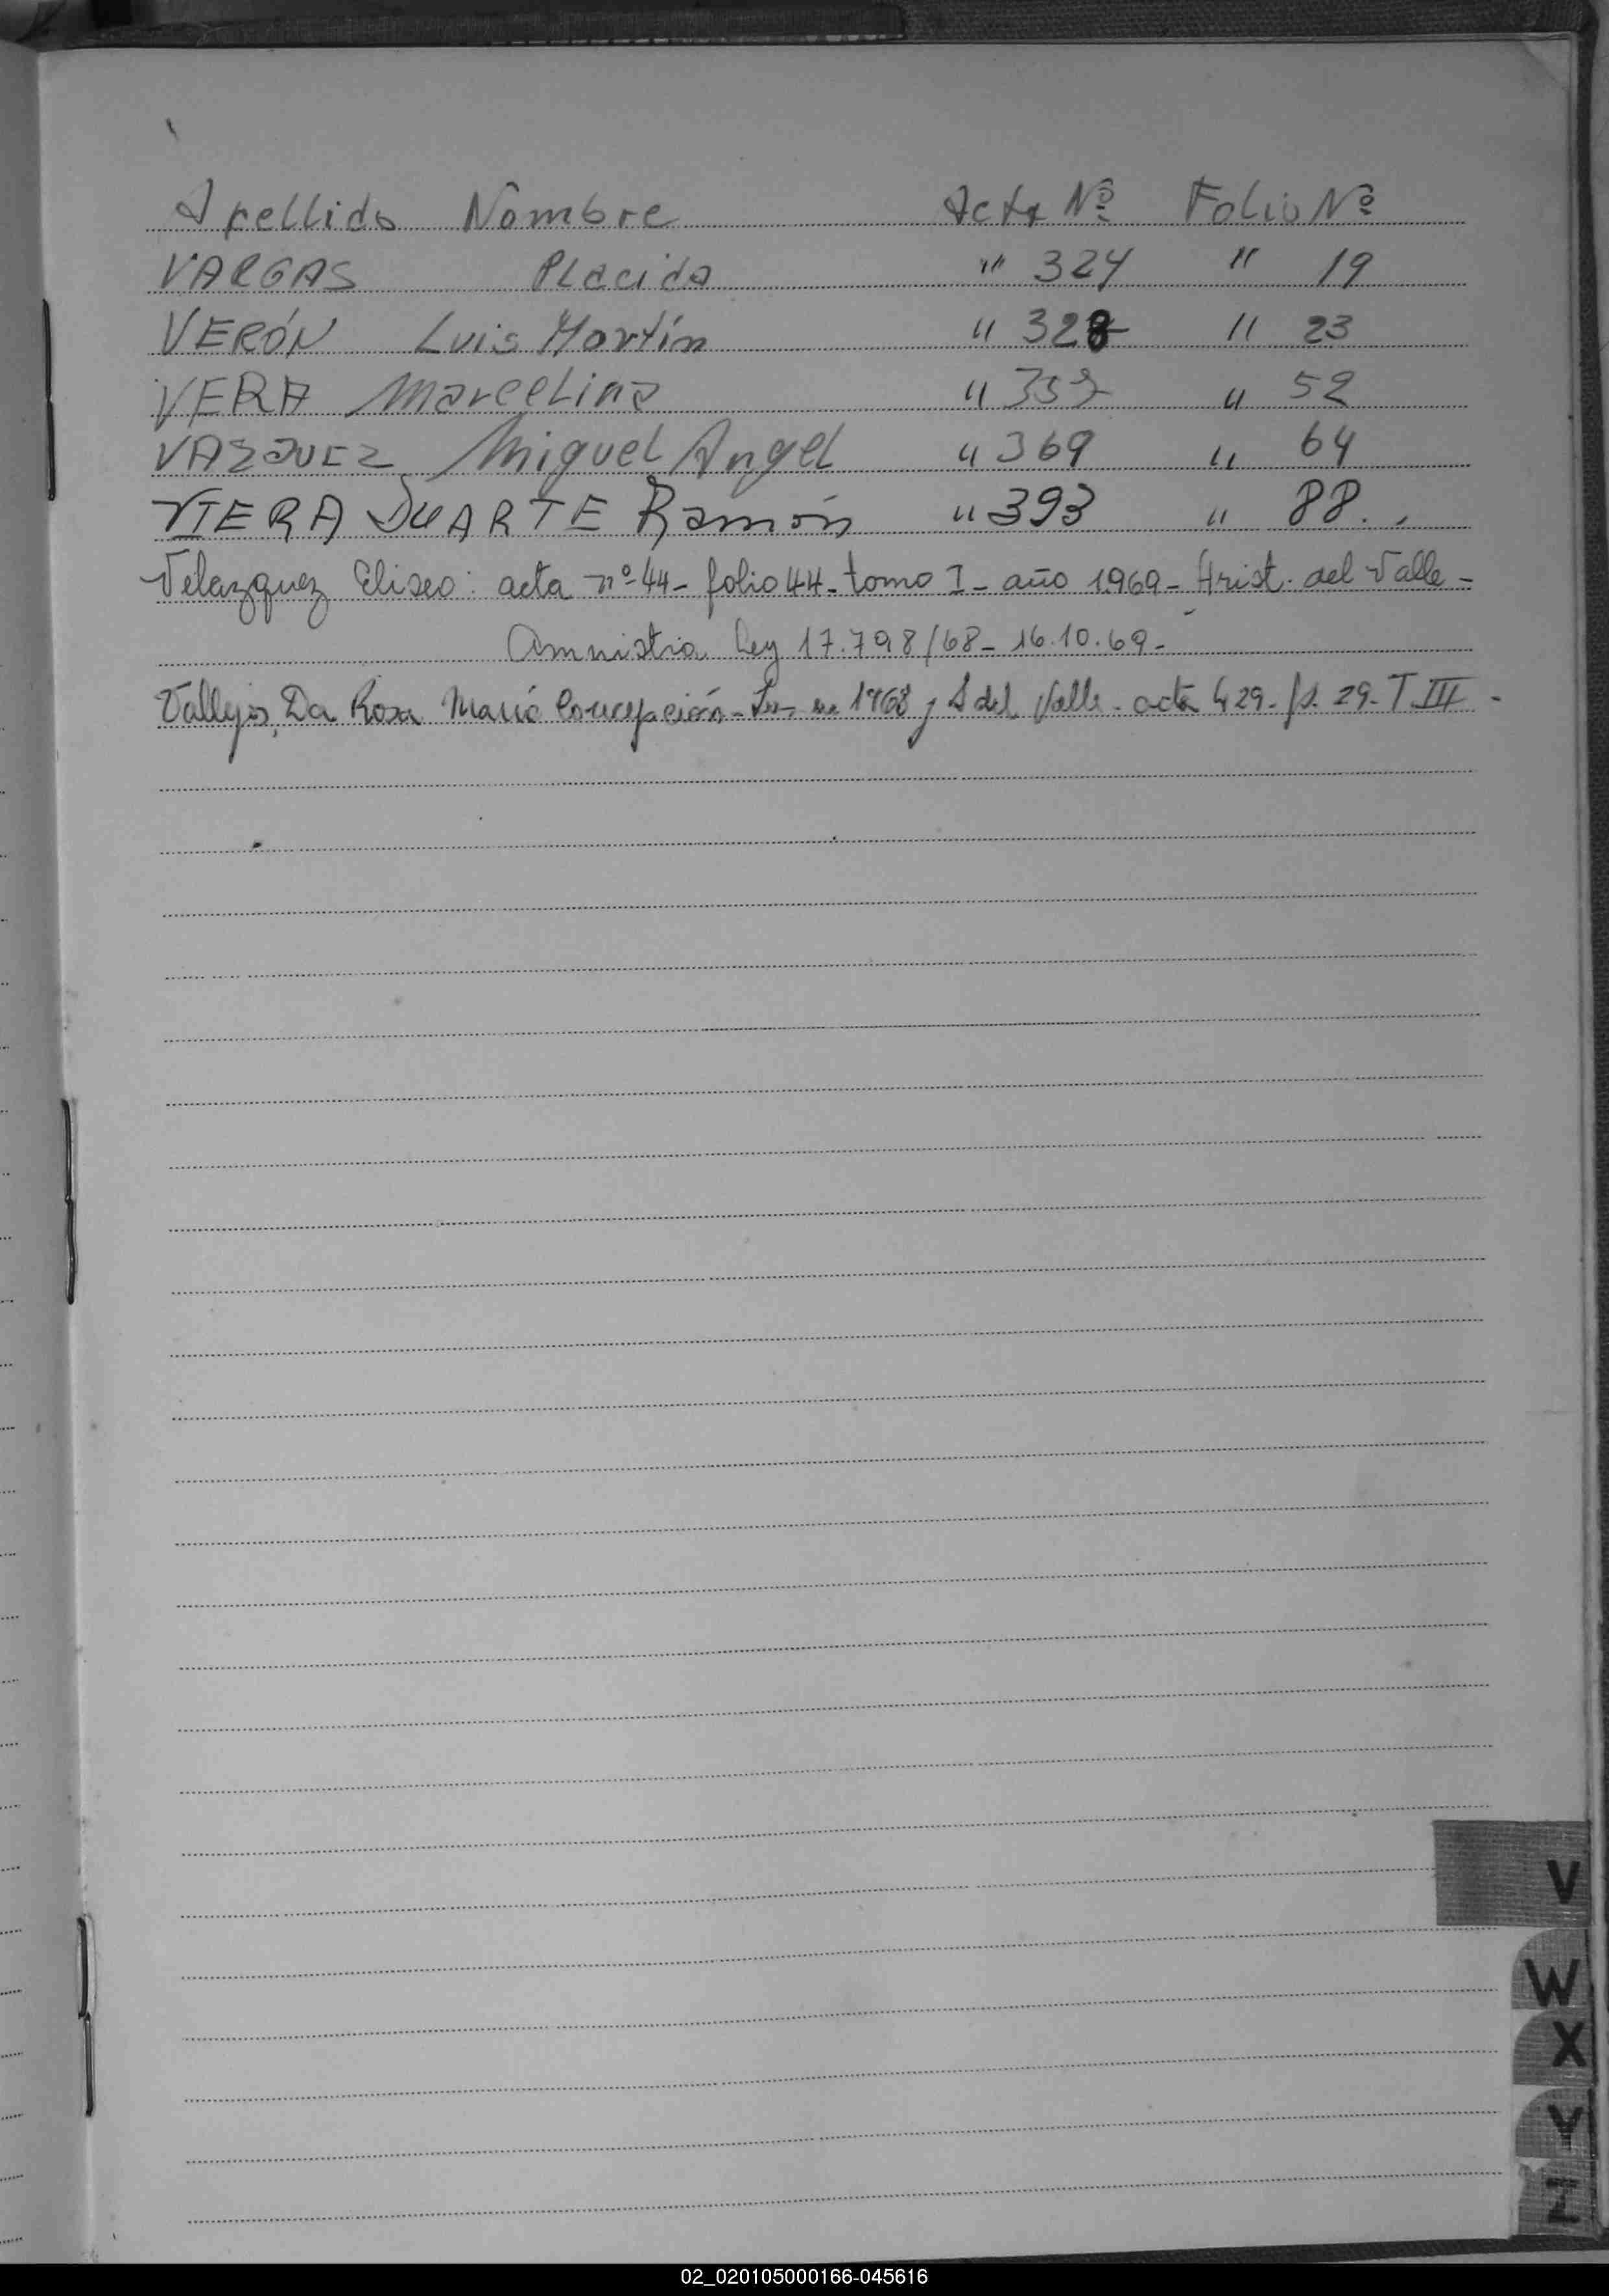 Apellido Nombre Acta Nº Folio Nº
VARGAS Placido " 324 " 19
VERÓN Luis Martín " 328 " 23
VERA Marcelina " 357 " 52
VAZQUEZ Miguel Angel " 369 " 64
VIERA DUARTE Ramón " 393 " 88.
Velazquez Eliseo: acta nº 44- folio 44- tomo I- año 1969- Arist. del Valle-
Amnistia Ley 17.798/68- 16.10.69-
Vallejos, Da Rosa María Concepción- 1968 del Valle- acta 429- fs. 29- T III-
V
W
X
Y
Z
02_020105000166-045616